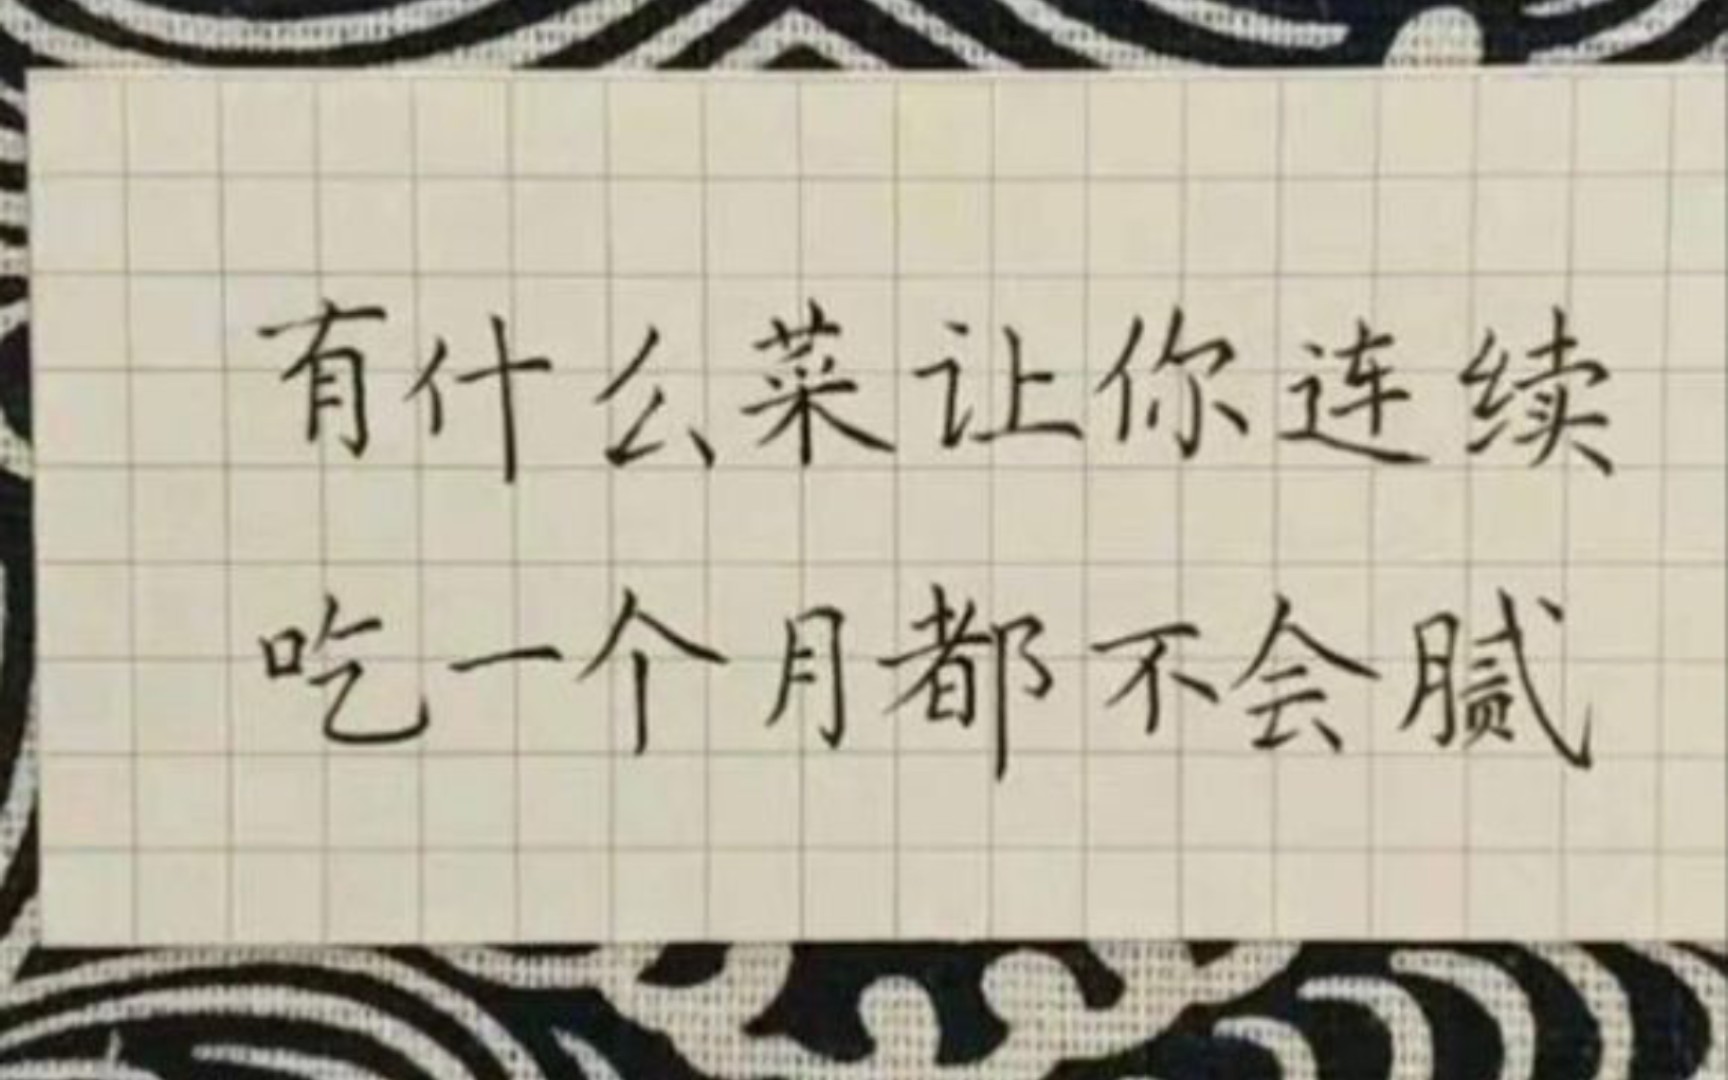 有什么菜让你连续
吃一个月都不会腻